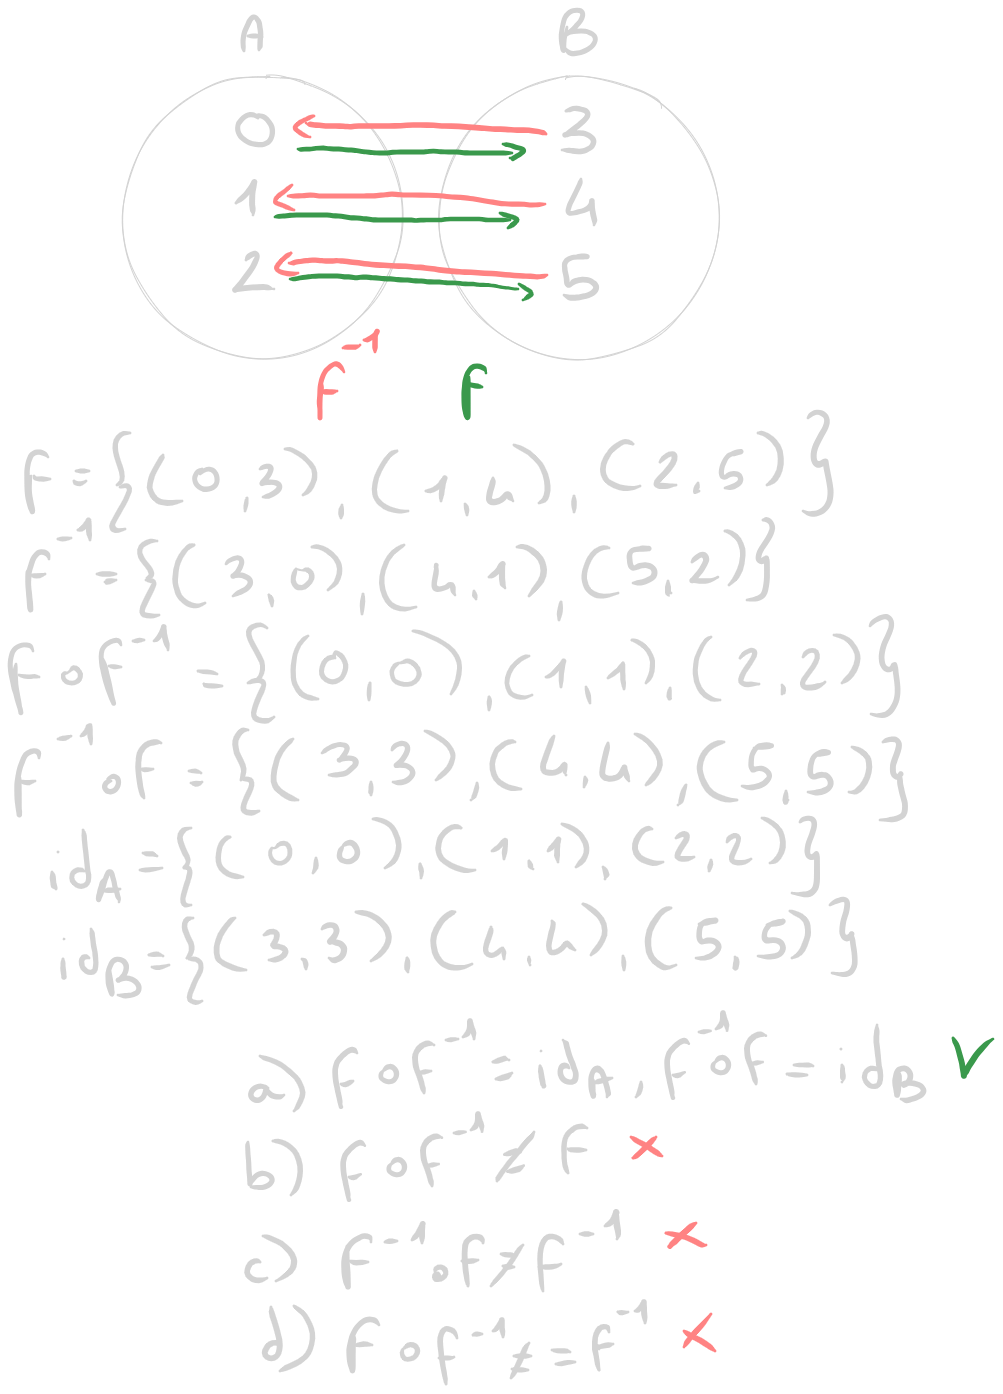 A B
0 3
1 4
2 5
f⁻¹ f
f = {(0,3), (1,4), (2,5)}
f⁻¹ = {(3,0), (4,1), (5,2)}
f∘f⁻¹ = {(0,0), (1,1), (2,2)}
f⁻¹∘f = {(3,3), (4,4), (5,5)}
id_A = {(0,0), (1,1), (2,2)}
id_B = {(3,3), (4,4), (5,5)}
a) f∘f⁻¹ = id_A, f⁻¹∘f = id_B ✓
b) f∘f⁻¹ ≠ f ×
c) f⁻¹∘f ≠ f⁻¹ ×
d) f∘f⁻¹ ≠ = f⁻¹ ×